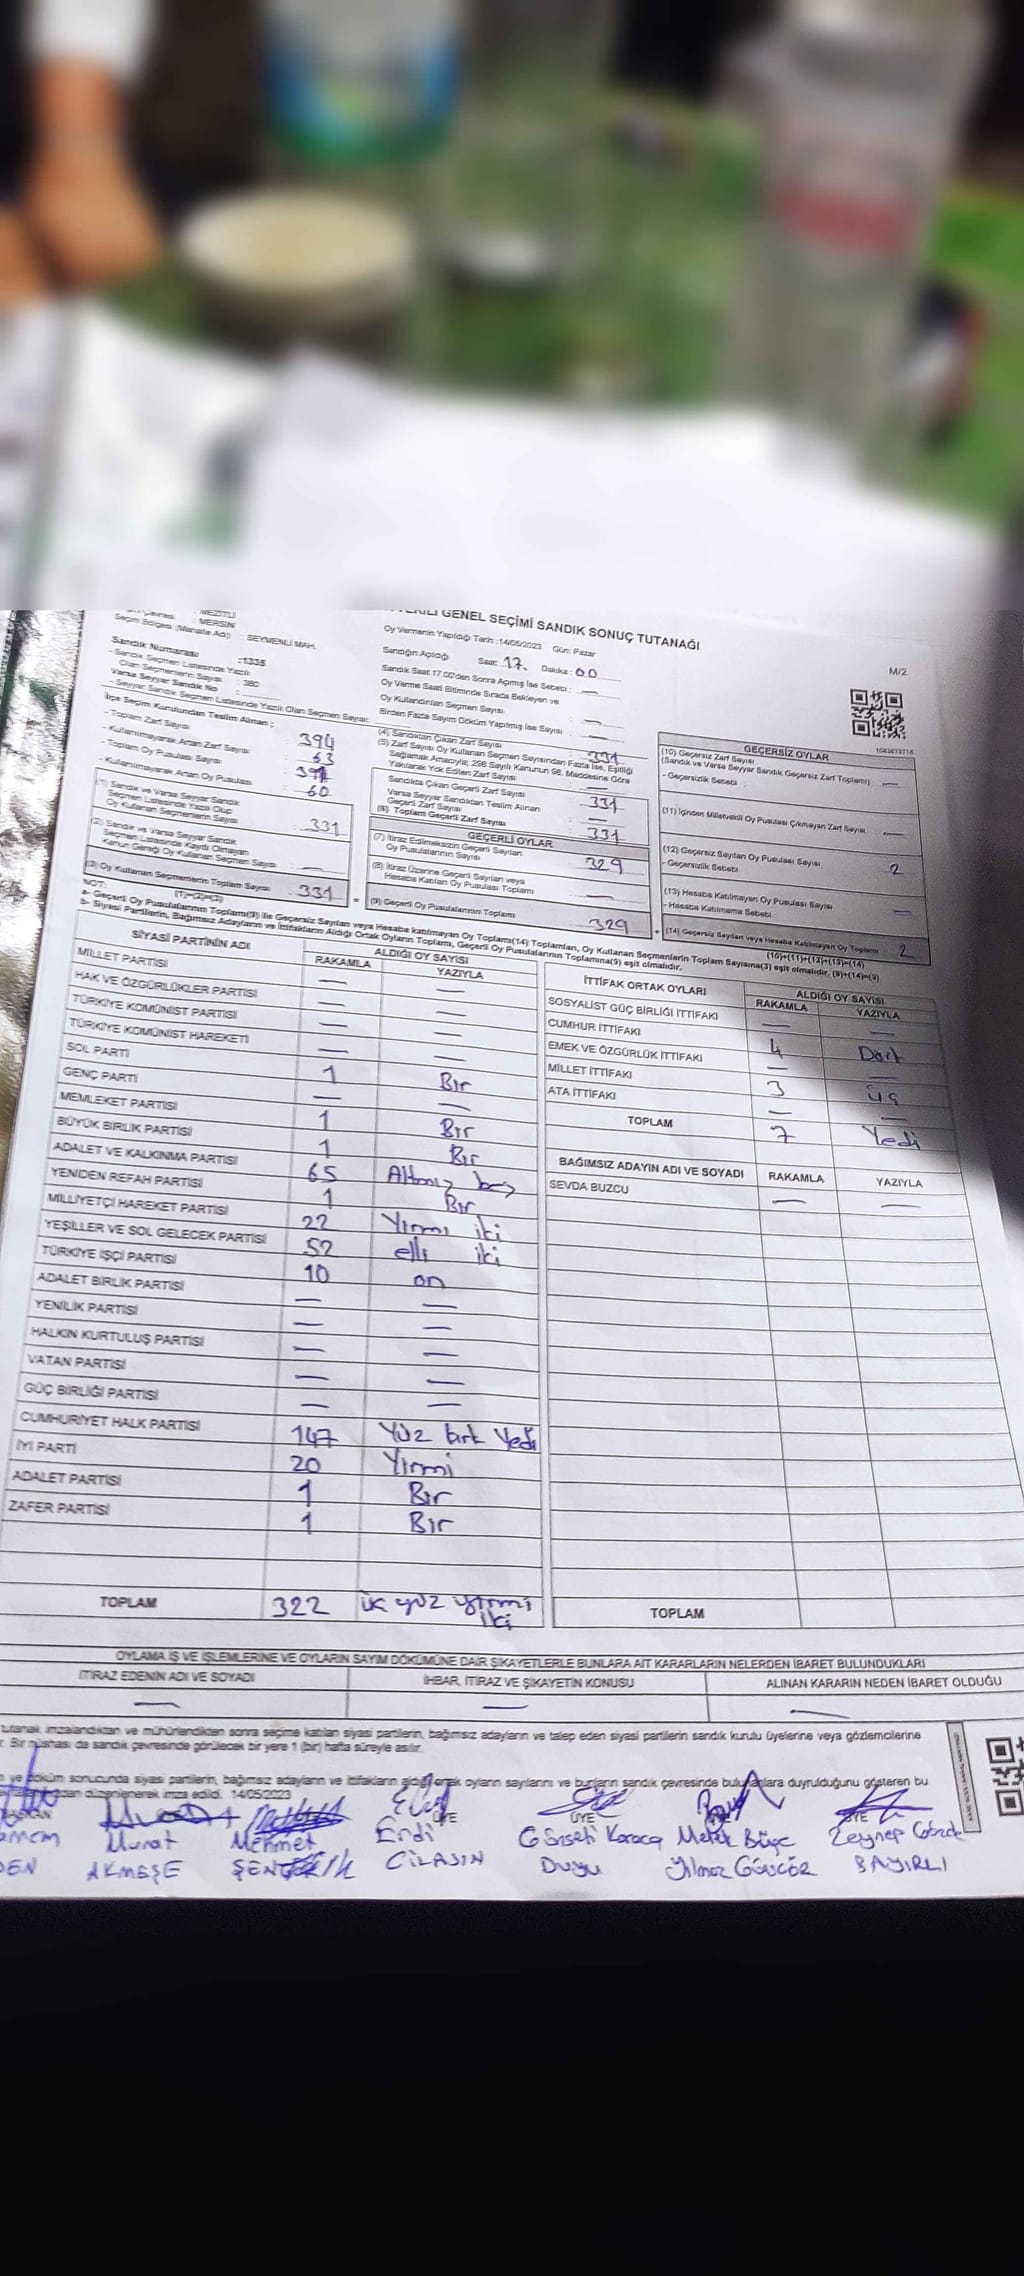 GENEL SEÇİMİ SANDIK SONUÇ TUTANAĞI
M/2
MEZİTLİ
: MERSİN
Seçim Bölgesi (Mahalle Adı) : SEYMENLİ MAH.
Sandık Numarası :1335
- Sandık Seçmen Listesinde Yazılı
Olan Seçmenlerin Sayısı : 380
Varsa Seyyar Sandık No :
- Seyyar Sandık Seçmen Listesinde Yazılı Olan Seçmen Sayısı:
İlçe Seçim Kurulundan Teslim Alınan ;
- Toplam Zarf Sayısı : 394
- Kullanılmayarak Artan Zarf Sayısı : 63
- Toplam Oy Pusulası Sayısı : 391
- Kullanılmayarak Artan Oy Pusulası : 60
(1) Sandık ve Varsa Seyyar Sandık
Seçmen Listesinde Yazılı Olup
Oy Kullanan Seçmenlerin Sayısı : 331
(2) Sandık ve Varsa Seyyar Sandık
Seçmen Listesinde Kayıtlı Olmayan
Kanun Gereği Oy Kullanan Seçmen Sayısı : —
(3) Oy Kullanan Seçmenlerin Toplam Sayısı : 331
(1)+(2)=(3)
Oy Vermenin Yapıldığı Tarih :14/05/2023 Gün: Pazar
Sandığın Açıldığı Saat: 17. Dakika : 00
Sandık Saat 17:00'den Sonra Açılmış İse Sebebi : —
Oy Verme Saati Bitiminde Sırada Bekleyen ve
Oy Kullandırılan Seçmen Sayısı : —
Birden Fazla Sayım Döküm Yapılmış İse Sayısı : —
(4) Sandıktan Çıkan Zarf Sayısı : 331
(5) Zarf Sayısı Oy Kullanan Seçmen Sayısından Fazla İse, Eşitliği
Sağlamak Amacıyla; 298 Sayılı Kanunun 98. Maddesine Göre
Yakılarak Yok Edilen Zarf Sayısı : —
Sandıkta Çıkan Geçerli Zarf Sayısı : 331
Varsa Seyyar Sandıktan Teslim Alınan
Geçerli Zarf Sayısı : —
(6) Toplam Geçerli Zarf Sayısı : 331
GEÇERLİ OYLAR
(7) İtiraz Edilmeksizin Geçerli Sayılan
Oy Pusulalarının Sayısı : 329
(8) İtiraz Üzerine Geçerli Sayılan veya
Hesaba Katılan Oy Pusulası Toplamı : —
(9) Geçerli Oy Pusulalarının Toplamı 329
GEÇERSİZ OYLAR
(10) Geçersiz Zarf Sayısı
(Sandık ve Varsa Seyyar Sandık Geçersiz Zarf Toplamı) —
- Geçersizlik Sebebi :
(11) İçinden Milletvekili Oy Pusulası Çıkmayan Zarf Sayısı —
(12) Geçersiz Sayılan Oy Pusulası Sayısı 2
- Geçersizlik Sebebi
(13) Hesaba Katılmayan Oy Pusulası Sayısı —
- Hesaba Katılmama Sebebi
(14) Geçersiz Sayılan veya Hesaba Katılmayan Oy Toplamı 2
(10)+(11)+(12)+(13)=(14)
NOT:
a- Geçerli Oy Pusulalarının Toplamı(9) ile Geçersiz Sayılan veya Hesaba katılmayan Oy Toplamı(14) Toplamları, Oy Kullanan Seçmenlerin Toplam Sayısına(3) eşit olmalıdır. (9)+(14)=(3)
b- Siyasi Partilerin, Bağımsız Adayların ve İttifakların Aldığı Ortak Oyların Toplamı, Geçerli Oy Pusulalarının Toplamına(9) eşit olmalıdır.
SİYASİ PARTİNİN ADI ALDIĞI OY SAYISI
RAKAMLA YAZIYLA
MİLLET PARTİSİ — —
HAK VE ÖZGÜRLÜKLER PARTİSİ — —
TÜRKİYE KOMÜNİST PARTİSİ — —
TÜRKİYE KOMÜNİST HAREKETİ — —
SOL PARTİ 1 Bir
GENÇ PARTİ — —
MEMLEKET PARTİSİ 1 Bir
BÜYÜK BİRLİK PARTİSİ 1 Bir
ADALET VE KALKINMA PARTİSİ 65 Altmış beş
YENİDEN REFAH PARTİSİ 1 Bir
MİLLİYETÇİ HAREKET PARTİSİ 22 Yirmi iki
YEŞİLLER VE SOL GELECEK PARTİSİ 52 elli iki
TÜRKİYE İŞÇİ PARTİSİ 10 on
ADALET BİRLİK PARTİSİ — —
YENİLİK PARTİSİ — —
HALKIN KURTULUŞ PARTİSİ — —
VATAN PARTİSİ — —
GÜÇ BİRLİĞİ PARTİSİ — —
CUMHURİYET HALK PARTİSİ 147 Yüz kırk Yedi
İYİ PARTİ 20 Yirmi
ADALET PARTİSİ 1 Bir
ZAFER PARTİSİ 1 Bir
TOPLAM 322 üç yüz yirmi iki
İTTİFAK ORTAK OYLARI ALDIĞI OY SAYISI
RAKAMLA YAZIYLA
SOSYALİST GÜÇ BİRLİĞİ İTTİFAKI — —
CUMHUR İTTİFAKI 4 Dört
EMEK VE ÖZGÜRLÜK İTTİFAKI — —
MİLLET İTTİFAKI 3 üç
ATA İTTİFAKI — —
TOPLAM 7 Yedi
BAĞIMSIZ ADAYIN ADI VE SOYADI RAKAMLA YAZIYLA
SEVDA BUZCU — —
TOPLAM
OYLAMA İŞ VE İŞLEMLERİNE VE OYLARIN SAYIM DÖKÜMÜNE DAİR ŞİKAYETLERLE BUNLARA AİT KARARLARIN NELERDEN İBARET BULUNDUKLARI
İTİRAZ EDENİN ADI VE SOYADI İHBAR, İTİRAZ VE ŞİKAYETİN KONUSU ALINAN KARARIN NEDEN İBARET OLDUĞU
— — —
tutanak imzalandıktan ve mühürlendikten sonra seçime katılan siyasi partilerin, bağımsız adayların ve talep eden siyasi partilerin sandık kurulu üyelerine veya gözlemcilerine
Bir nüshası da sandık çevresinde görülecek bir yere 1 (bir) hafta süreyle asılır.
ve döküm sonucunda siyasi partilerin, bağımsız adayların ve ittifakların aldığı ortak oyların sayılarını ve bunların sandık çevresinde bulunanlara duyrulduğunu gösteren bu
düzenlenerek imza edildi. 14/05/2023
BAŞKAN ÜYE ÜYE ÜYE
Murat Mehmet Erdi Karaca Melek Büşe Zeynep
AKMEŞE CİLASIN Duyu Yılmaz BAYIRLI